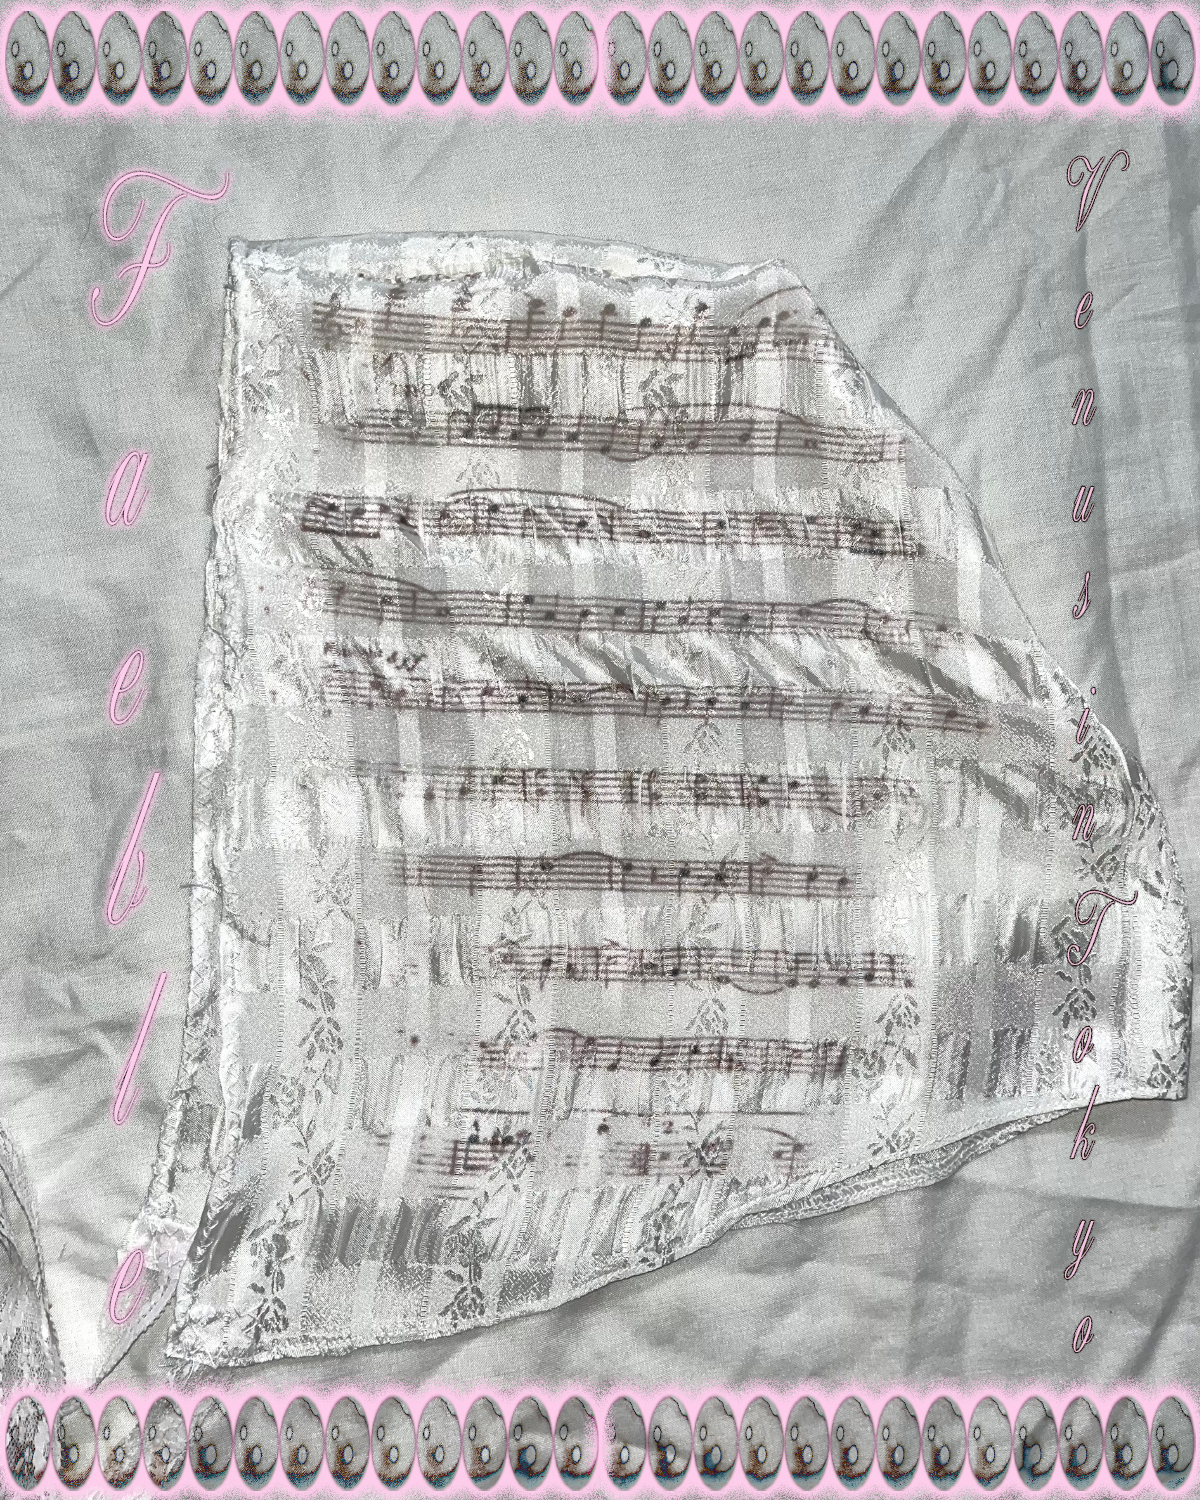 Faeble
Venus in Tokyo